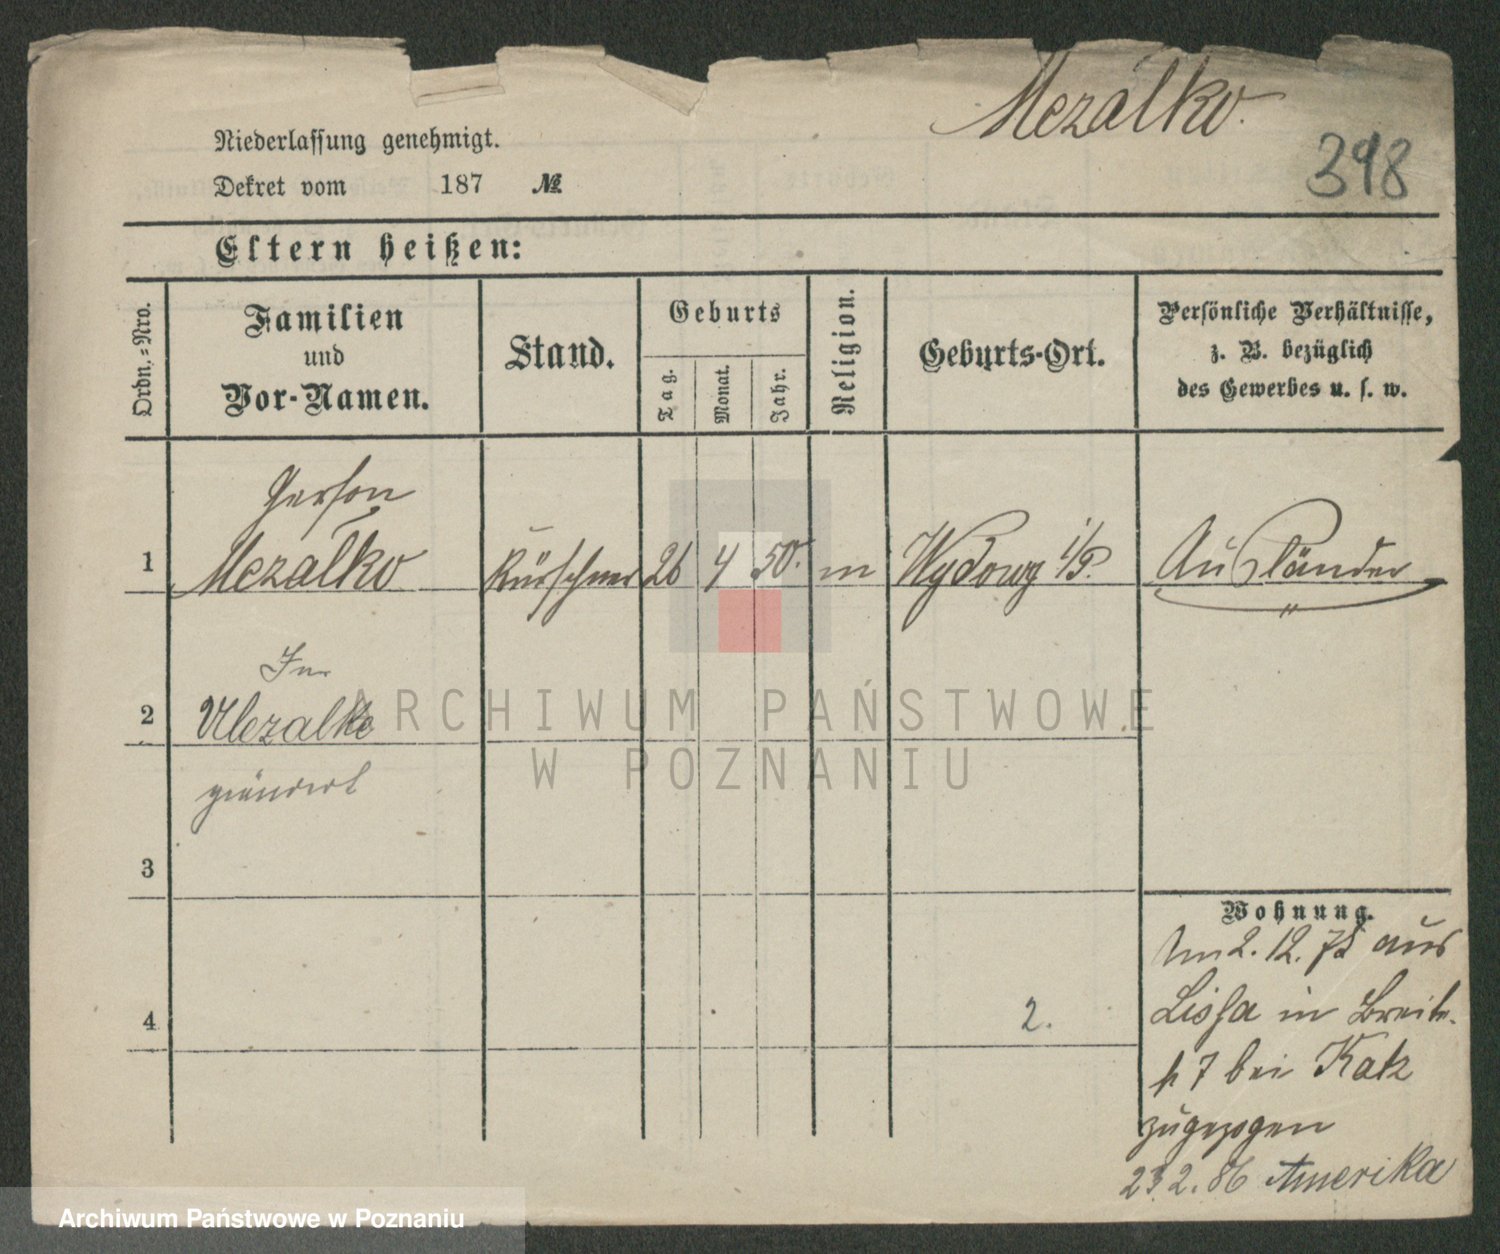 Mezałko.
398
Niederlassung genehmigt.
Dekret vom 187 №
Eltern heißen:
Ordn.-Nro.
Familien
und
Vor-Namen.
Stand.
Geburts
Tag.
Monat.
Jahr.
Religion.
Geburts-Ort.
Persönliche Verhältnisse,
z. B. bezüglich
des Gewerbes u. s. w.
Gerson
1 Mezałko Kürschner 26 4 50. m i/P. Ausländer
In
2 Mezalke
geändert
3
4 2.
Wohnung.
Am 2. 12. aus
Lissa in Breite-
7 bei Katz
zugezogen
23.2.86 Amerika
ARCHIWUM PAŃSTWOWE
W POZNANIU
Archiwum Państwowe w Poznaniu